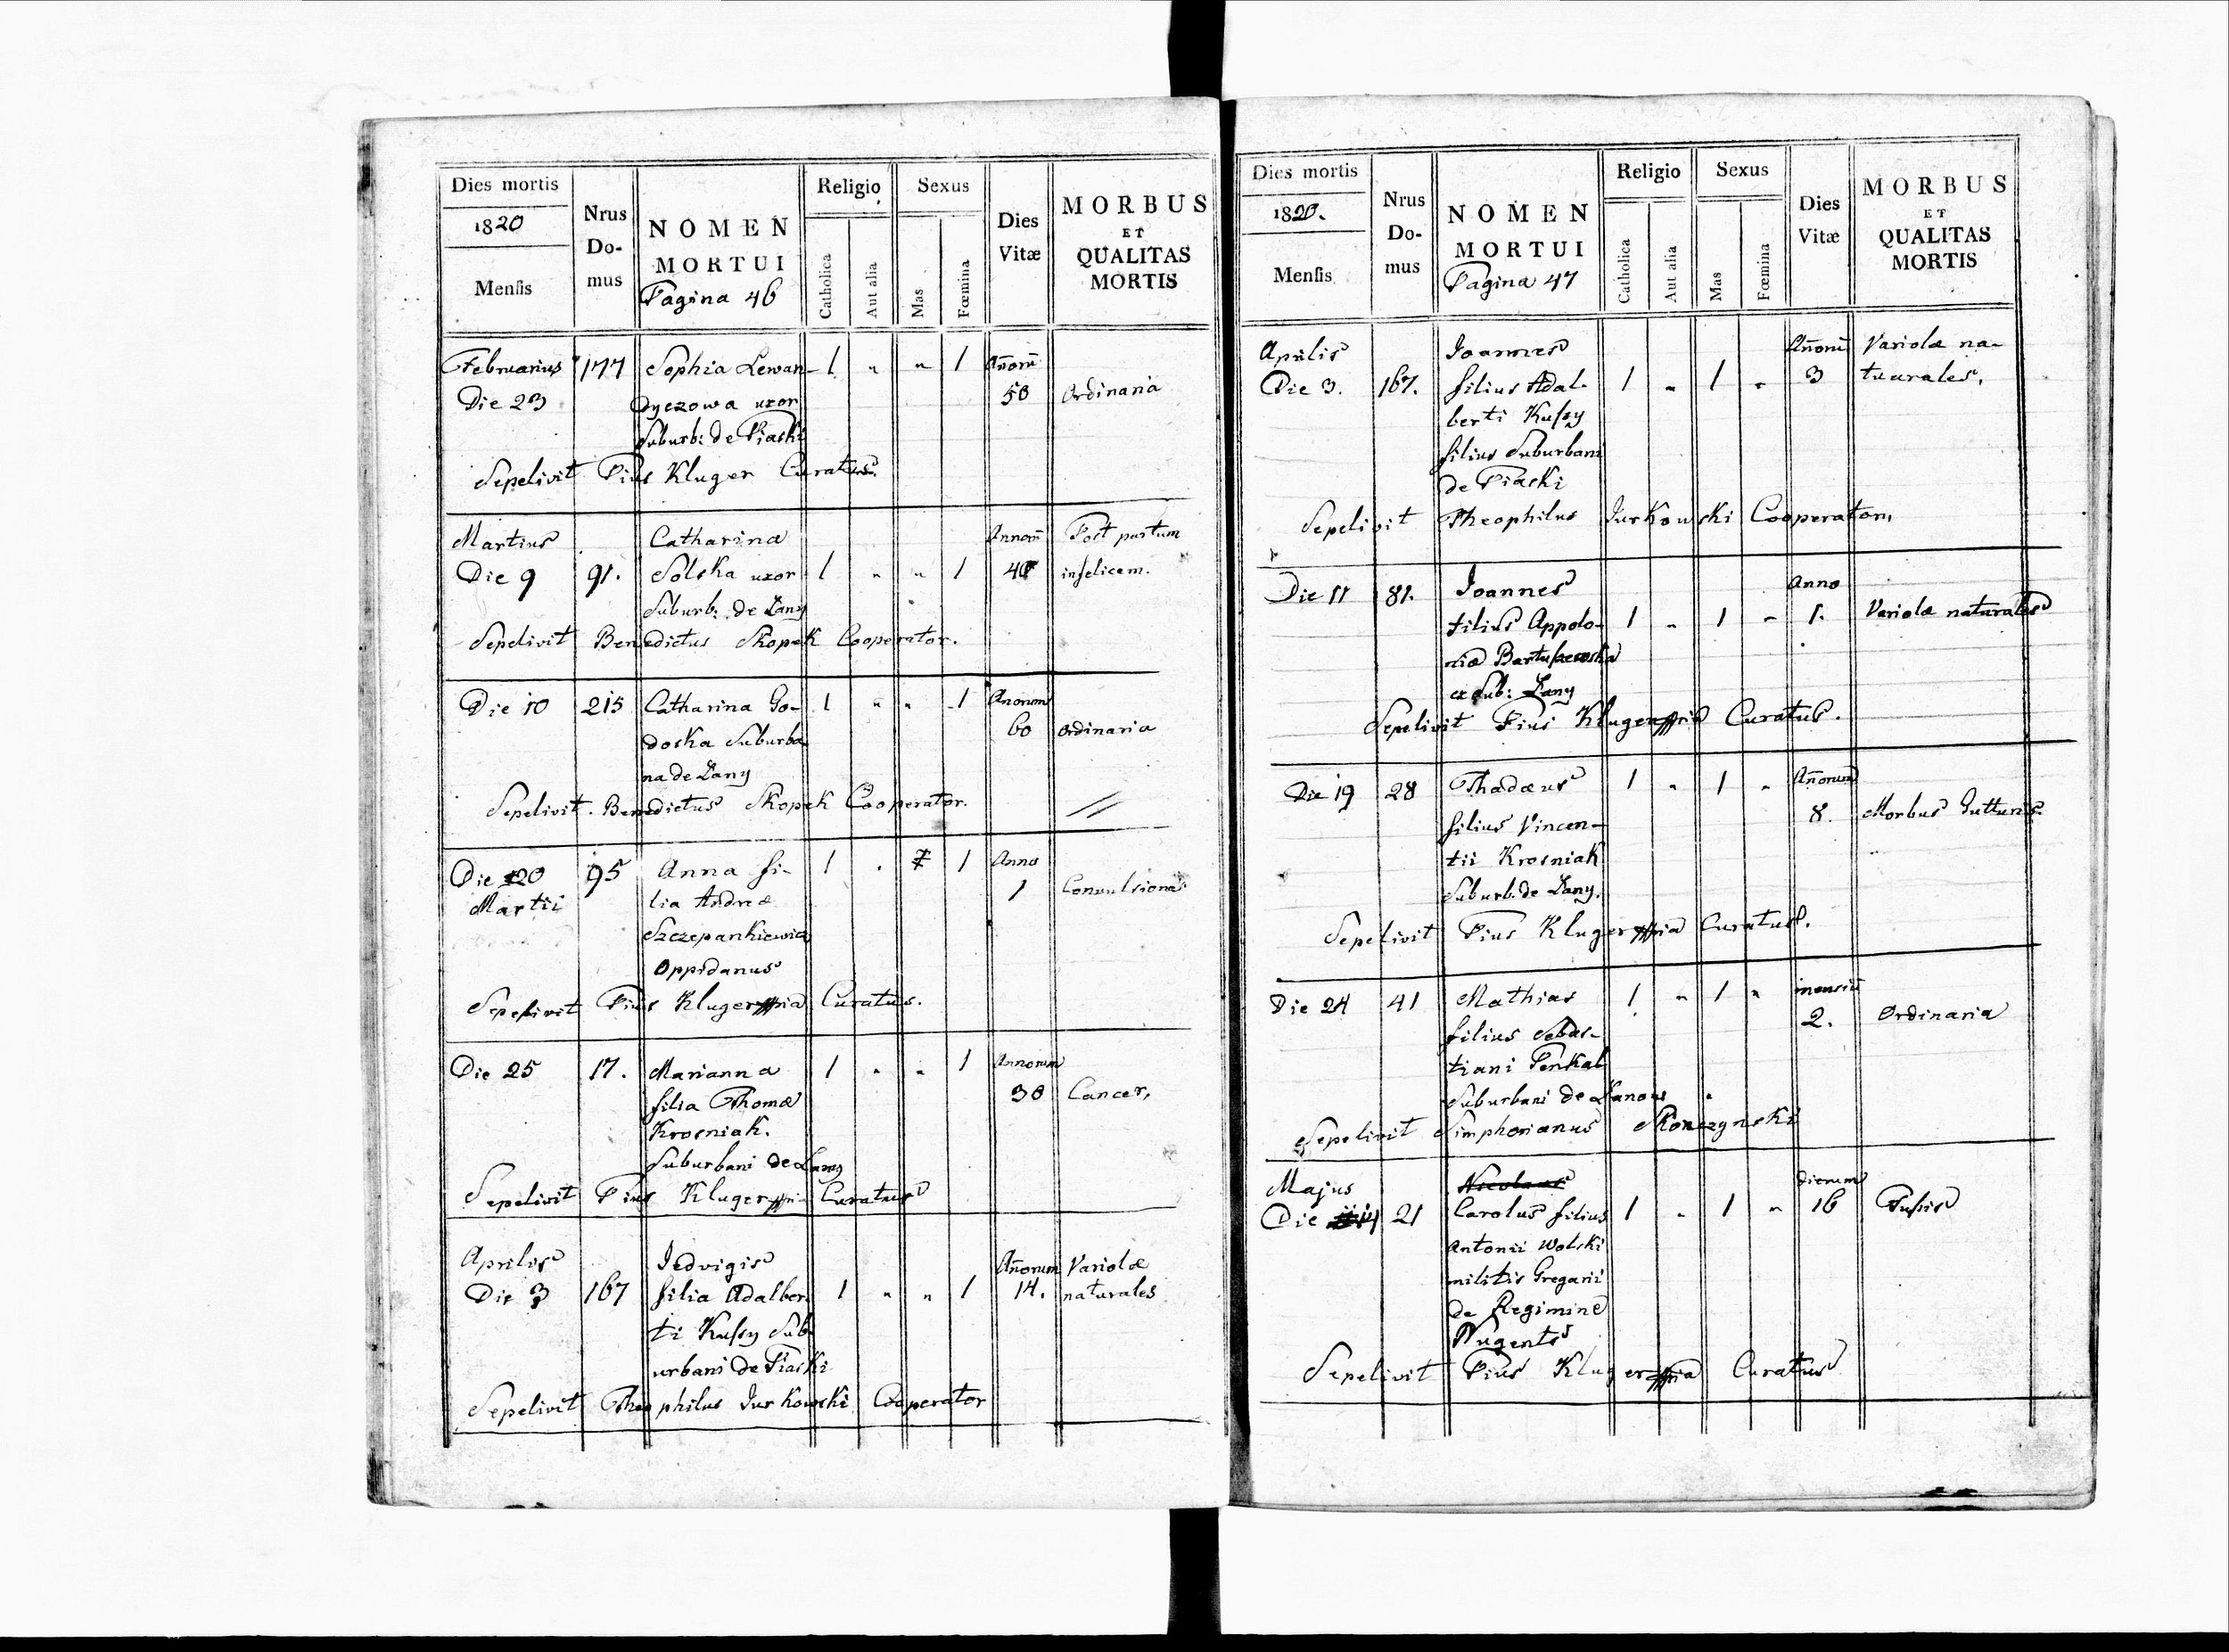 Dies mortis
1820
Mensis
Nrus
Do-
mus
NOMEN
MORTUI
Pagina 46
Religio
Catholica
Aut alia
Sexus
Mas
Fœmina
Dies
Vitæ
MORBUS
ET
QUALITAS
MORTIS
Februarius 177 Sophia Lewan- 1 " " 1 Añorum
Die 23 dyczowa uxor 50 Ordinaria
Suburb: de Piaski
Sepelivit Pius Kluger Curatus.
Martius Catharina Annorum Post partum
Die 9 91. Solska uxor 1 " " 1 40 infelicem.
Suburb: de Łany
Sepelivit Benedictus Skopek Cooperator.
Die 10 215 Catharina Go- 1 " " 1 Anorum
doska Suburba 60 Ordinaria
na de Łany
Sepelivit. Benedictus Skopek Cooperator.
Die 20 95 Anna fi- 1 . 1 Anno
Martii lia Andreæ 1 Convulsiones
Szczepankiewicz
Oppidanus
Sepelivit Pius Kluger Curatus.
Die 25 17. Marianna 1 " " 1 Annorum
filia Thomæ 30 Cancer,
Krosniak.
Suburbani de Łany
Sepelivit Pius Kluger Curatus
Aprilis Jedvigis Añorum Variolæ
Die 3 167 filia Adalber 1 " " 1 14. naturales
ti Kussy Sub
urbani de Piaski
Sepelivit Theophilus Jurkowski Cooperator
Dies mortis
1820.
Mensis
Nrus
Do-
mus
NOMEN
MORTUI
Pagina 47
Religio
Catholica
Aut alia
Sexus
Mas
Fœmina
Dies
Vitæ
MORBUS
ET
QUALITAS
MORTIS
Aprilis Joannes Añorum Variolæ na-
Die 3. 167. filius Adal- 1 " 1 " 3 turales.
berti Kussy
filius Suburbani
de Piaski
Sepelivit Theophilus Jurkowski Cooperator,
Die 11 81. Joannes Anno
filius Appolo- 1 " 1 - 1. Variolæ naturales
niæ
ex Sub: Łany
Sepelivit Pius Kluger Curatus.
Die 19 28 Thadæus 1 " 1 " Añorum
filius Vincen- 8. Morbus Gutturis.
tii Krosniak
Suburb. de Łany.
Sepelivit Pius Kluger Curatus.
Die 24 41 Mathias 1 " 1 " mensium
filius Sebas- 2. Ordinaria
tiani Penkal
Suburbani de Łanow
Sepelivit Simphorianus Skonczynski
Majus Nicolaus dierum
Die 21 Carolus filius 1 " 1 " 16 Tussis
Antonii Wolski
militis Gregarii
de Regimine
Nugents
Sepelivit Pius Kluger Curatus